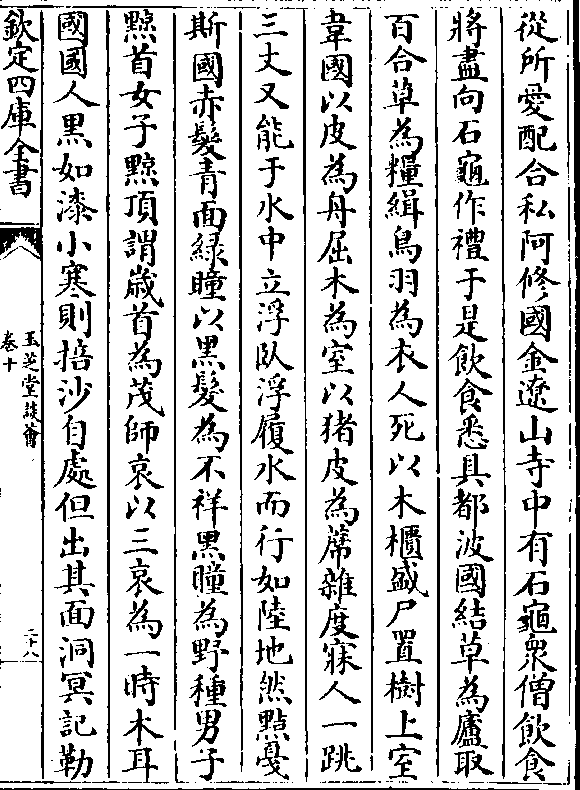 從所愛配合私阿修國金遼山寺中有石龜衆僧飲食
將盡向石龜作禮于是飲食悉具都波國結草為廬取
百合草為糧緝鳥羽為衣人死以木櫃盛尸置樹上室
韋國以皮為舟屈木為室以猪皮為蓆雜度寐人一跳
三丈又能于水中立浮臥浮履水而行如陸地然黠戛
斯國赤髮青面緑瞳以黒髮為不祥黒瞳為野種男子
黥首女子黥頂謂歲首為茂師哀以三哀為一時木耳
國國人黒如漆小寒則掊沙自處但出其面洞冥記勒
欽定四庫全書
玉芝堂談薈
卷十
二十八